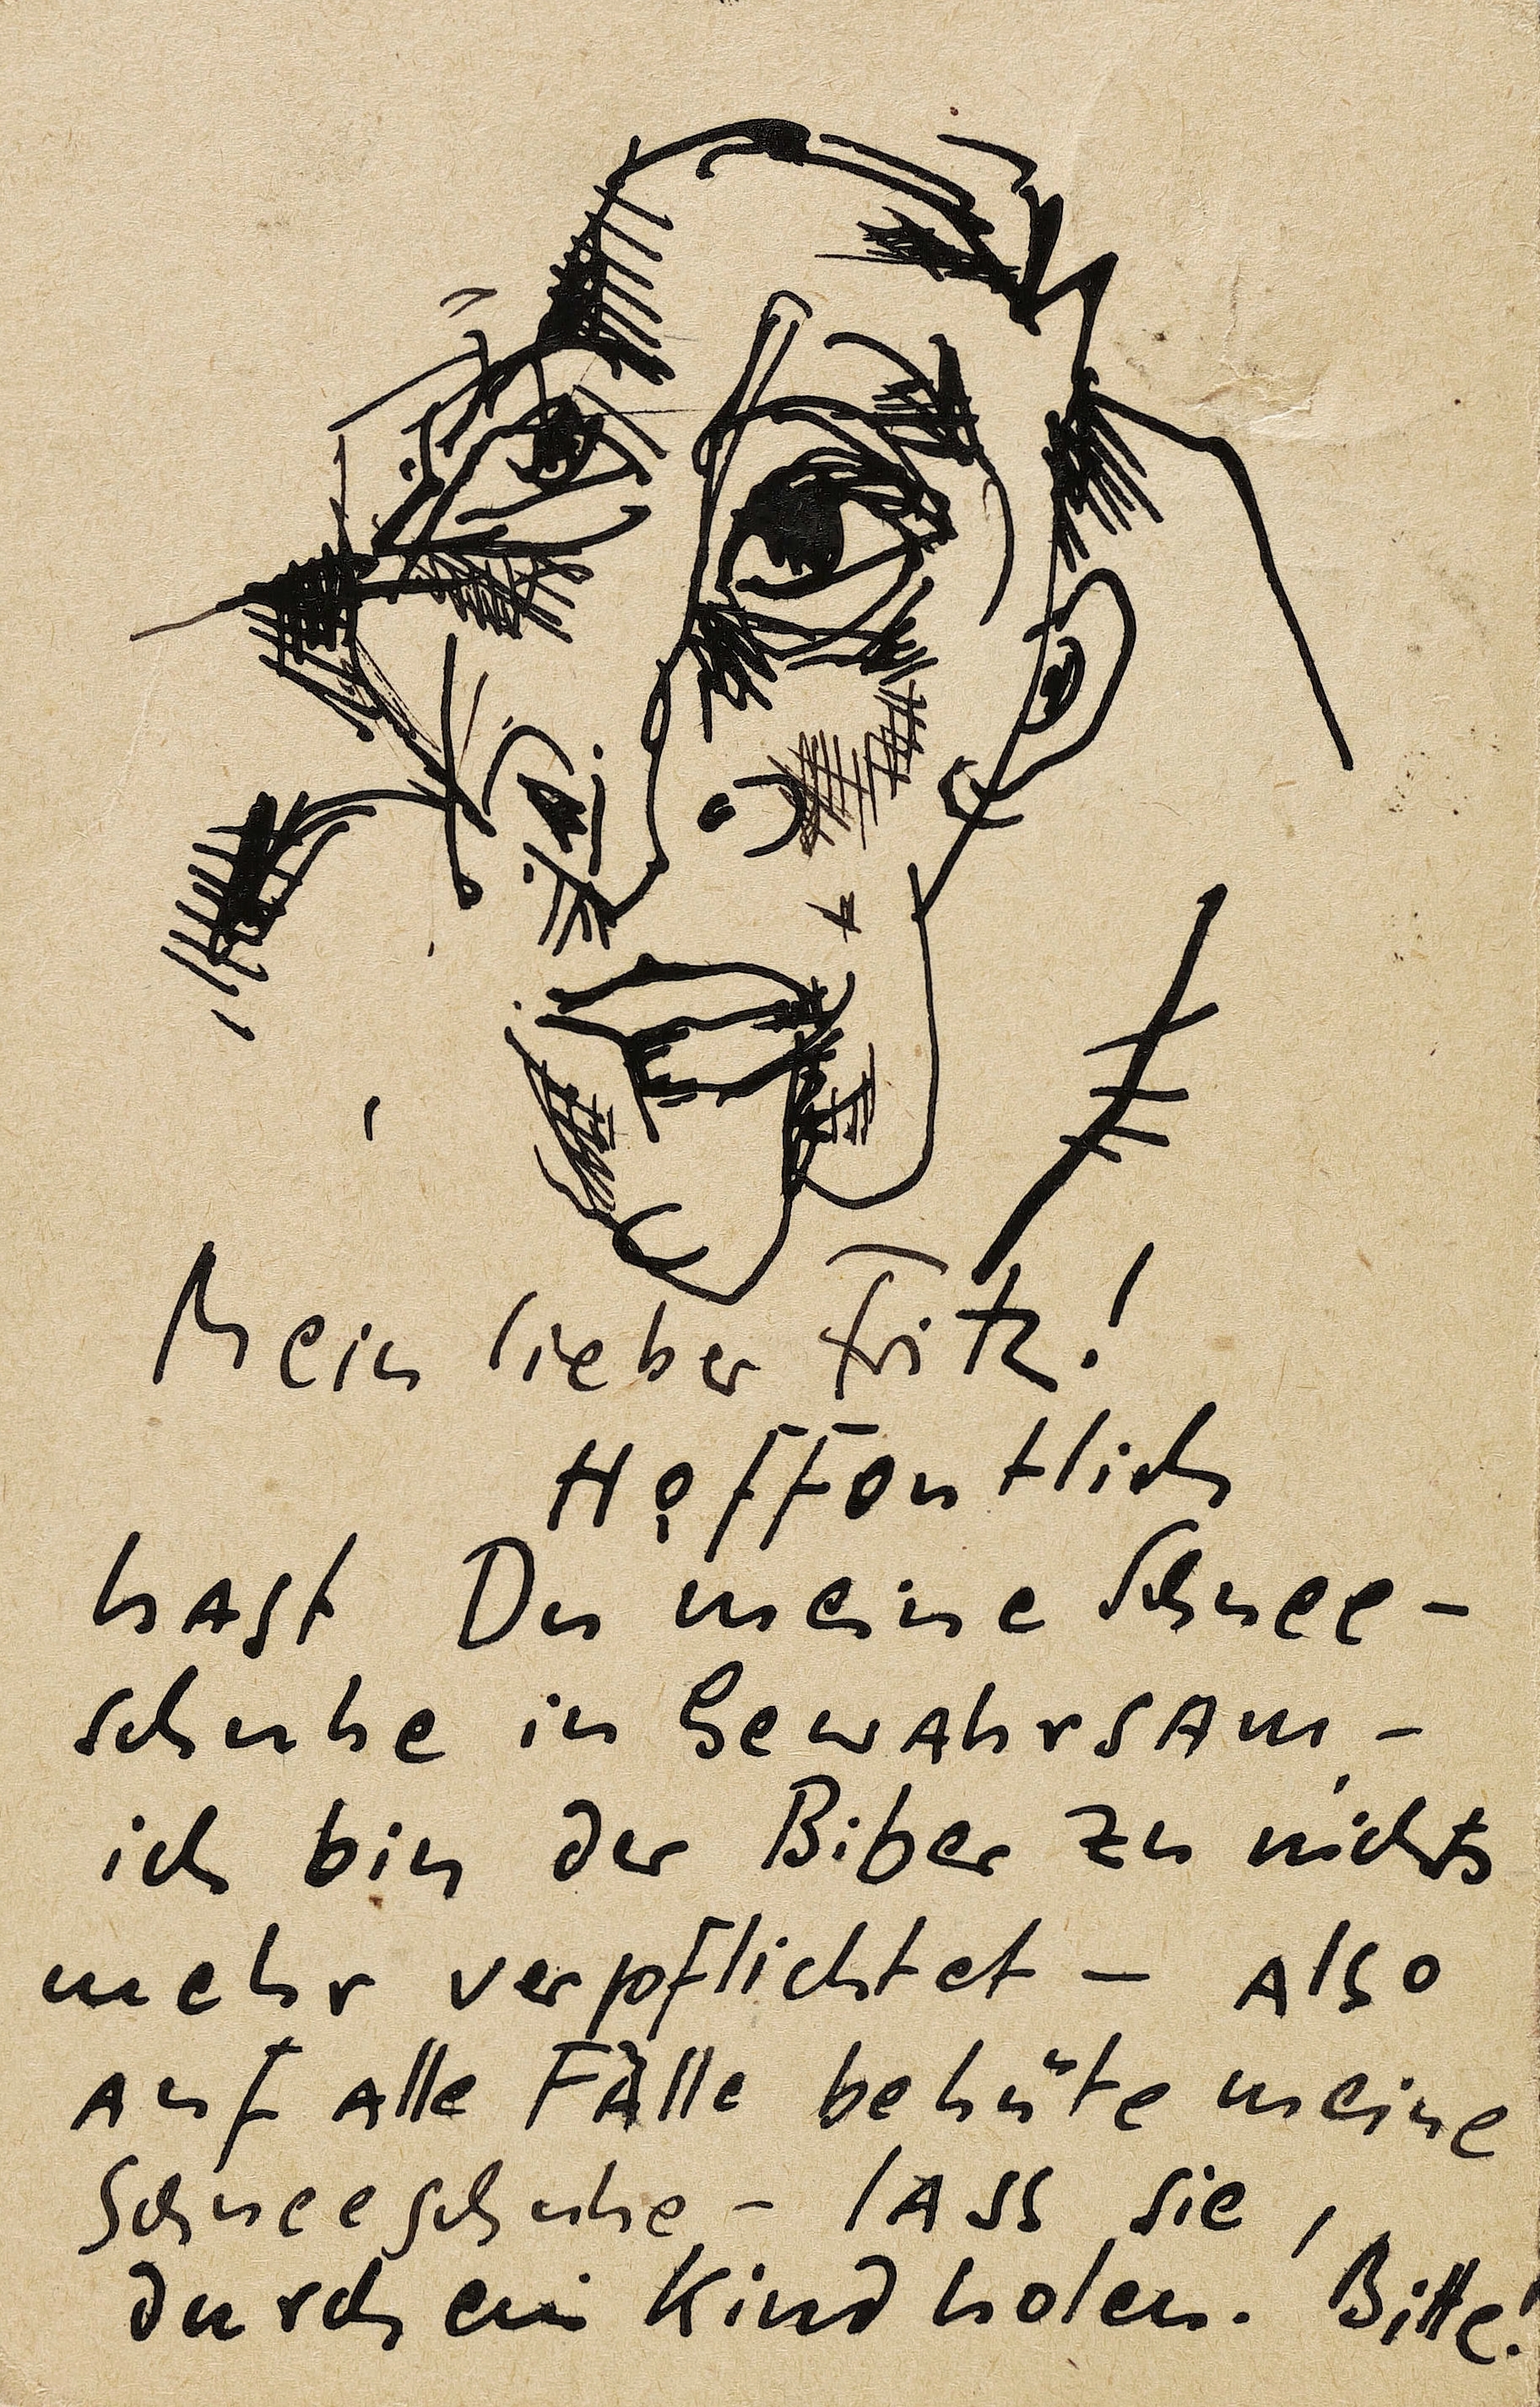 Mein lieber Fritz!
Hoffentlich
hast Du meine Schnee-
schuhe in Gewahrsam -
ich bin der Biber zu nichts
mehr verpflichtet - also
auf alle Fälle behüte meine
Schneeschuhe - lass sie,
durch ein Kind holen. Bitte!